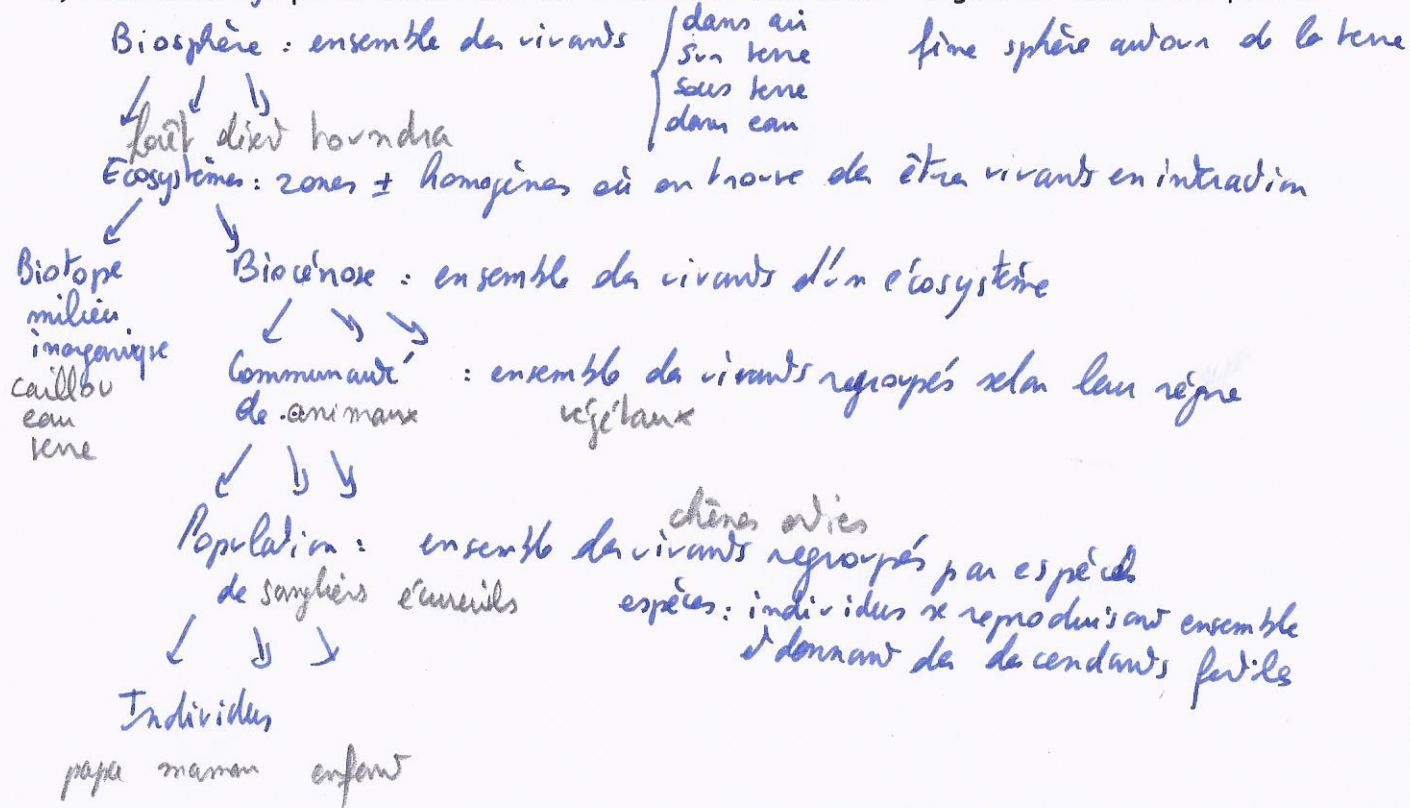 Biosphère : ensemble des vivants { dans air
sur terre
sous terre
dans eau
fine sphère autour de la terre
forêt désert toundra
Ecosystèmes : zones ± homogènes où on trouve des êtres vivants en intéraction
Biotope
milieu
inorganique
caillou
eau
terre
Biocénose : ensemble des vivants d'un écosystème
Communauté : ensemble des vivants regroupés selon leur règne
de animaux végétaux
chênes orties
Population : ensemble des vivants regroupés par espèces
de sangliers écureuils
espèces : individus se reproduisant ensemble
et donnant des decendants fertiles
Individus
papa maman enfant